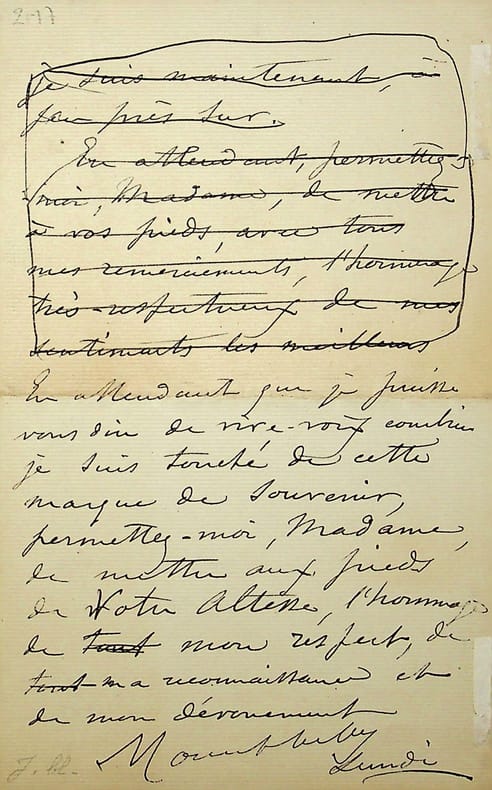 2-17
je suis maintenant, à
peu près sur.
En attendant, permettez-
moi, Madame, de mettre
à vos pieds, avec tous
mes remerciements, l'hommage
très-respectueux de mes
sentiments les meilleurs
En attendant que je puisse
vous dire de vive-voix combien
je suis touché de cette
marque de souvenir,
permettez-moi, Madame,
de mettre aux pieds
de Votre Altesse, l'hommage
de tout mon respect, de
tout ma reconnaissance et
de mon dévouement
Lundi